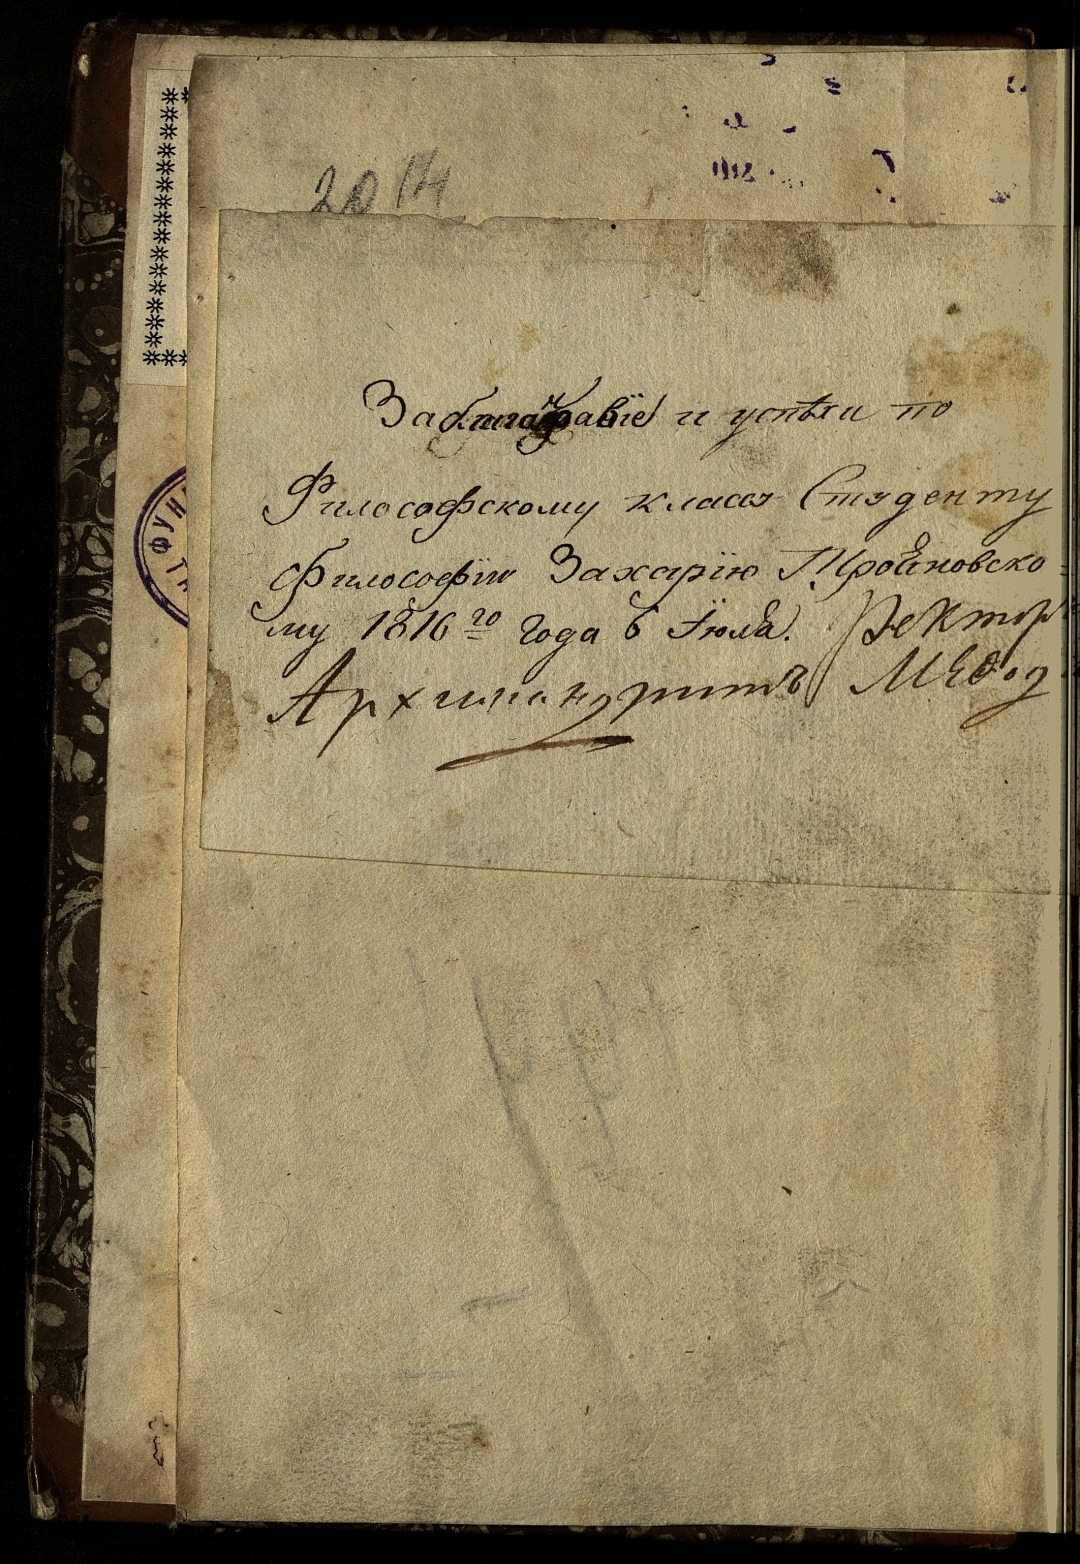 За благонравїе и успѣхи по
Философскому классу Студенту
Философїи Захарїю Тройановско=
му 1816го года в Їюлѣ. Ректор
Архимандритъ Мефод
ФУН